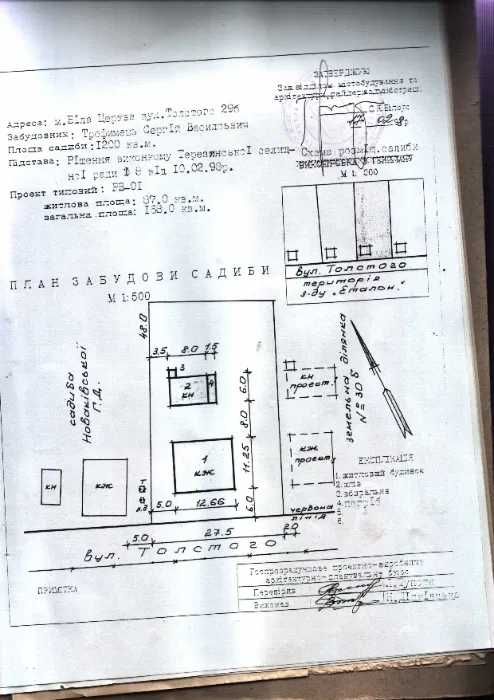 ЗАТВЕРДЖУЮ
Адреса: м.Біла Церква вул.Толстого 29б
Забудовник: Трофимець Сергій Васильович
Площа садиби: 1200 кв.м.
Підстава: Рішення виконкому Терезинської селищ-
ної ради № 8 від 10.02.98р.
Проект типовий: РВ-01
житлова площа: 87.0 кв.м.
загальна площа: 138.0 кв.м.
Схема розміщ.садиби
М 1: 200
вул. Толстого
територія
з-ду „Еталон"
ПЛАН ЗАБУДОВИ САДИБИ
М 1:500
48.0
3.5 8.0 1.5
3
2
кн
4
6.0
8.0
11.25
6.0
1
кж
5.0 12.66
садиба
Новаківської
Г.Д.
кн
кж
кн
проект.
кж
проект.
земельна ділянка
N = 30 б
червона
лінія
5.0 27.5 2.0
вул. Толстого
ЕКСПЛІКАЦІЯ
1. житловий будинок
2.
3. вбиральня
4. погріб
5.
6.
ПРИМІТКА
Госпрозрахункове проектно-виробниче
архітектурно-планувальне бюро
Перевірив
Виконав